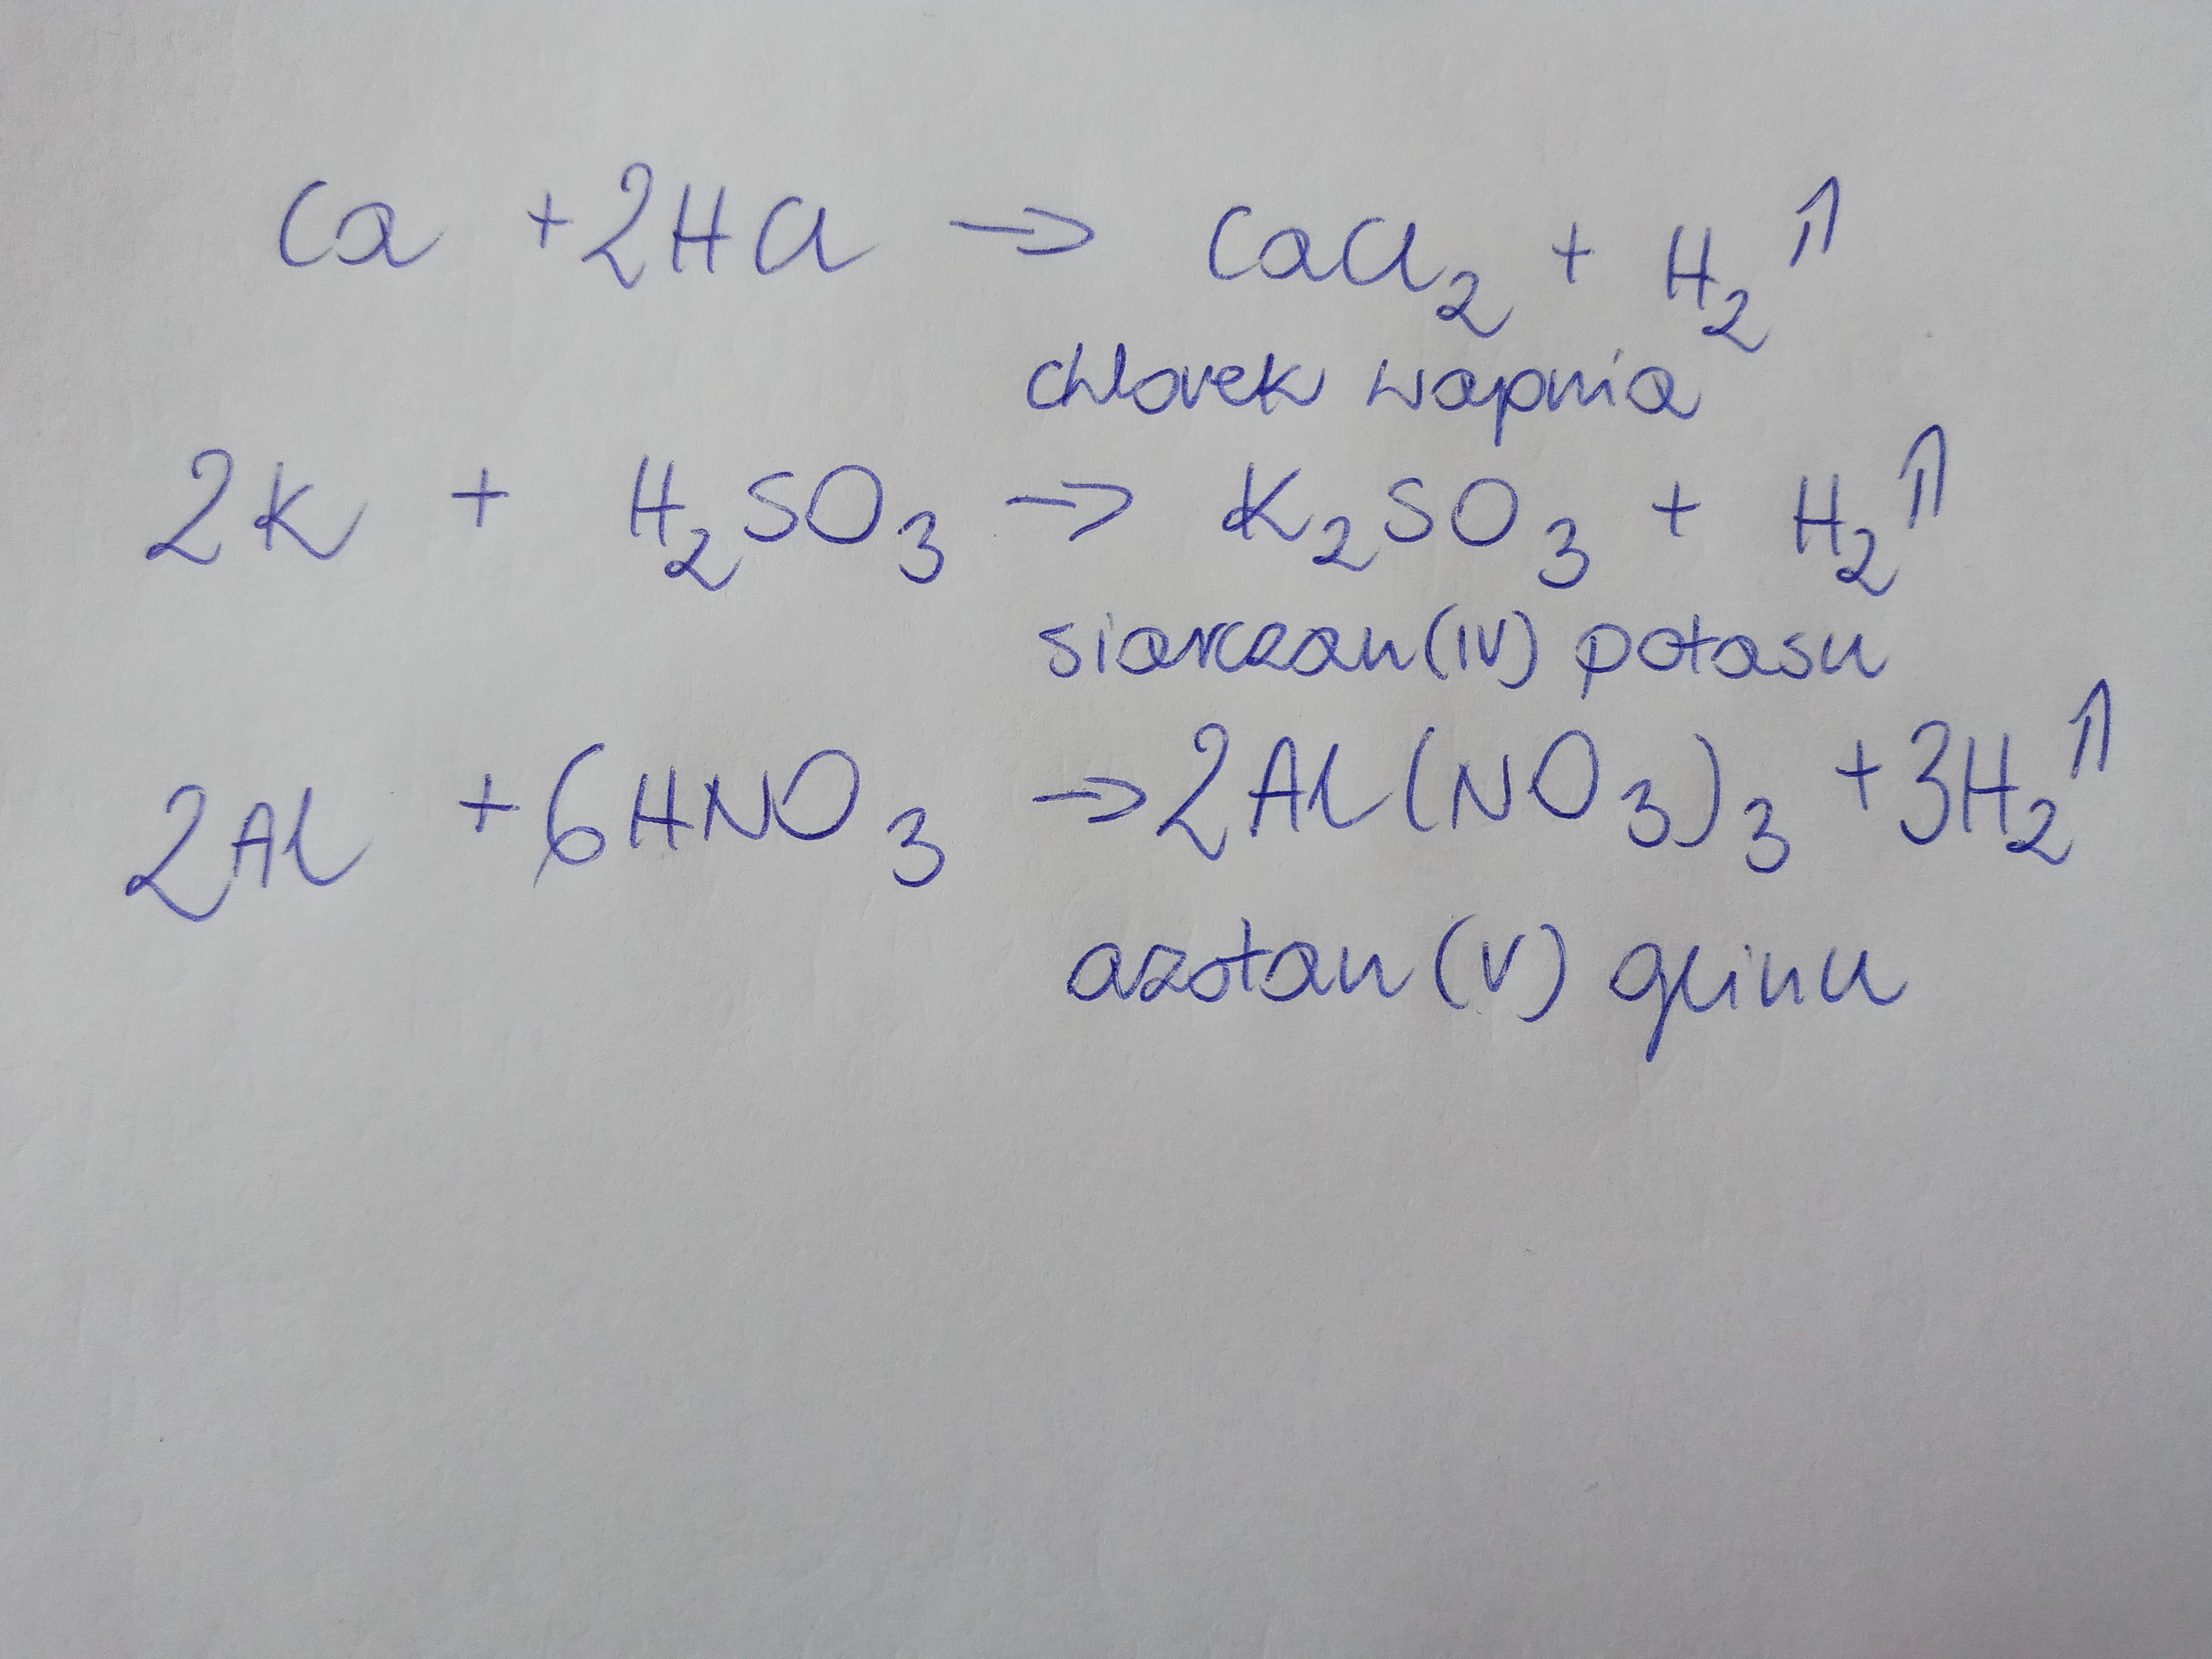 Ca + 2HCl → CaCl₂ + H₂↑
chlorek wapnia
2K + H₂SO₃ → K₂SO₃ + H₂↑
siarczan(IV) potasu
2Al + 6HNO₃ → 2Al(NO₃)₃ + 3H₂↑
azotan(V) glinu